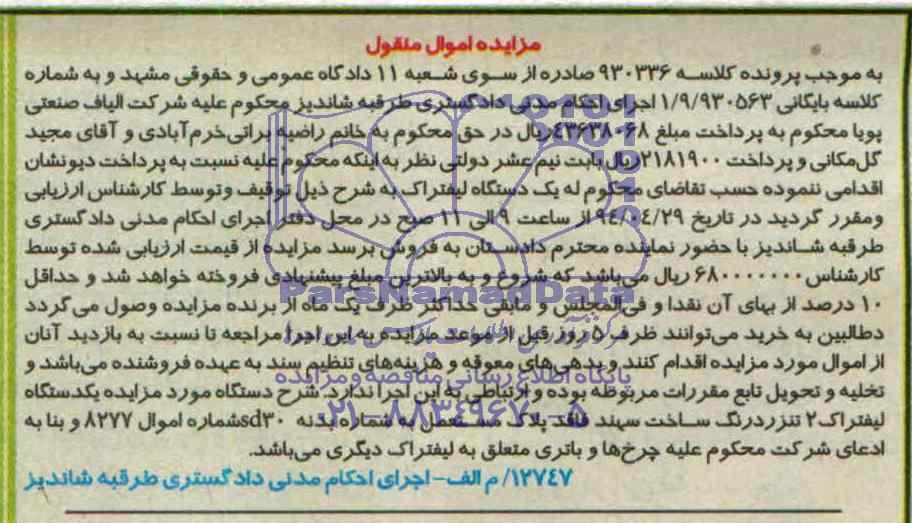 مزایده اموال منقول
به موجب پرونده کلاسه ۹۳۰۳۳۶ صادره از سوی شعبه ۱۱ دادگاه عمومی و حقوقی مشهد و به شماره
کلاسه بایگانی ۱/۹/۹۳۰۵۶۳ اجرای احکام مدنی دادگستری طرقبه شاندیز محکوم علیه شرکت الیاف صنعتی
پویا محکوم به پرداخت مبلغ ۴۳۶۳۸۰۶۸ ریال در حق محکوم به خانم راضیه براتی خرم آبادی و آقای مجید
گل مکانی و پرداخت ۲۱۸۱۹۰۰ ریال بابت نیم عشر دولتی نظر به اینکه محکوم علیه نسبت به پرداخت دیونشان
اقدامی ننموده حسب تقاضای محکوم له یک دستگاه لیفتراک به شرح ذیل توقیف وتوسط کارشناس ارزیابی
ومقرر گردید در تاریخ ۹٤/۰٤/۲۹ از ساعت ۹ الی ۱۱ صبح در محل دفتر اجرای احکام مدنی دادگستری
طرقبه شاندیز با حضور نماینده محترم دادستان به فروش برسد مزایده از قیمت ارزیابی شده توسط
کارشناس ۶۸۰۰۰۰۰۰۰ ریال می باشد که شروع و به بالاترین مبلغ پیشنهادی فروخته خواهد شد و حداقل
۱۰ درصد از بهای آن نقدا و فی المجلس و مابقی حداکثر ظرف یک ماه از برنده مزایده وصول می گردد
دطالبین به خرید می‌توانند ظرف ۵ روز قبل از موعد مزایده به این اجرا مراجعه تا نسبت به بازدید آنان
از اموال مورد مزایده اقدام کنند و بدهی های معوقه و هزینه‌های تنظیم سند به عهده فروشنده می‌باشد و
تخلیه و تحویل تابع مقررات مربوطه بوده و ارتباطی به این اجرا ندارد. شرح دستگاه مورد مزایده یکدستگاه
لیفتراک ۲ تنزردرنگ ساخت سهند فاقد پلاک مستعمل به شماره بدنه sd۳۰ شماره اموال ۸۲۷۷ و بنا به
ادعای شرکت محکوم علیه چرخ‌ها و باتری متعلق به لیفتراک دیگری می‌باشد.
۱۲۷٤۷/ م الف- اجرای احکام مدنی دادگستری طرقبه شاندیز
ParsNamadData
پایگاه اطلاع رسانی مناقصه و مزایده
۰۲۱-۸۸۳٤۹۶۷۰-۵